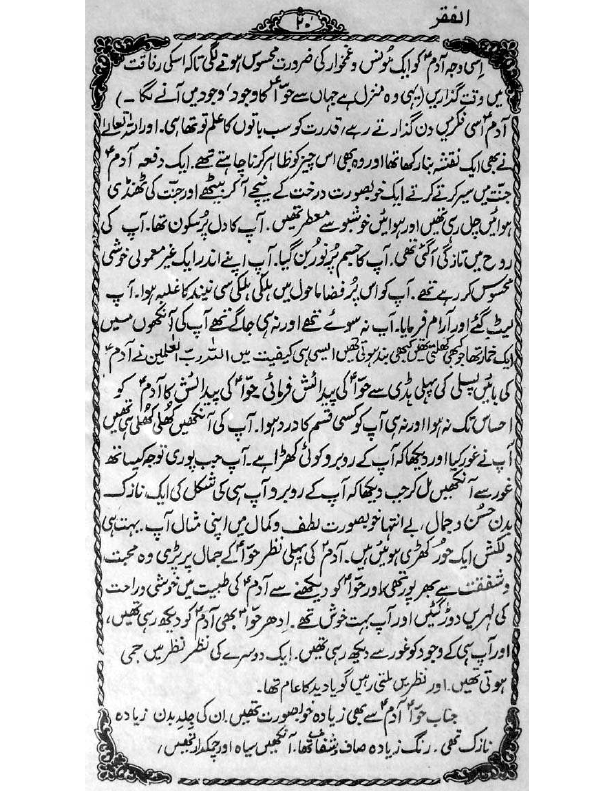 الفقر
۲۰
اسی وجہ آدم ؑ کو ایک مونس و غمخوار کی ضرورت محسوس ہونے لگی تاکہ اسکی رفاقت
میں وقت گذاریں (یہی وہ منزل ہے جہاں سے حوا ؑ کا وجود، وجود میں آنے لگا۔)
آدم ؑ اسی فکر میں دن گذارتے رہے، قدرت کو سب باتوں کا علم تو تھا ہی۔ اور اللہ تعالےٰ
نے بھی ایک نقشہ بنا رکھا تھا اور وہ بھی اس چیز کو ظاہر کرنا چاہتے تھے۔ ایک دفعہ آدم ؑ
جنت میں سیر کرتے کرتے ایک خوبصورت درخت کے نیچے آ کر بیٹھے اور جنت کی ٹھنڈی
ہوائیں چل رہی تھیں اور ہوائیں خوشبو سے معطر تھیں۔ آپ کا دل پُر سکون تھا۔ آپ کی
روح میں تازگی آگئی تھی۔ آپ کا جسم پُر نور بن گیا۔ آپ اپنے اندر ایک غیر معمولی خوشی
محسوس کر رہے تھے۔ آپ کو اس پُر فضا ماحول میں ہلکی ہلکی سی نیند کا غلبہ ہوا۔ آپ
لیٹ گئے اور آرام فرمایا۔ آپ نہ سوئے تھے اور نہ ہی جاگے تھے آپ کی آنکھوں میں
ایک خمار تھا جو کبھی کھلتی تھیں کبھی بند ہوتی تھیں ایسی ہی کیفیت میں اللہ رب العٰلمین نے آدم ؑ
کی بائیں پسلی کی پہلی ہڈی سے حوا ؑ کی پیدائش فرمائی۔ حوا ؑ کی پیدائش کا آدم ؑ کو
احساس تک نہ ہوا اور نہ ہی آپ کو کسی قسم کا درد ہوا۔ آپ کی آنکھیں کھلی کھلی ہی تھیں
آپ نے غور کیا اور دیکھا کہ آپ کے روبرو کوئی کھڑا ہے۔ آپ جب پوری توجہ کیساتھ
غور سے آنکھیں مل کر جب دیکھا کہ آپ کے روبرو آپ سی کی شکل کی ایک نازک
بدن حسن و جمال، بے انتہا خوبصورت لطف و کمال میں اپنی مثال آپ۔ بہت ہی
دلکش ایک حور کھڑی ہوئیں ہیں۔ آدم ؑ کی پہلی نظر حوا ؑ کے جمال پر پڑی وہ محبت
و شفقت سے بھر پور تھی اور حوا ؑ کو دیکھنے سے آدم ؑ کی طبیت میں خوشی و راحت
کی لہریں دوڑ گئیں اور آپ بہت خوش تھے۔ ادھر حوا ؑ بھی آدم ؑ کو دیکھ رہی تھیں،
اور آپ سی کے وجود کو غور سے دیکھ رہی تھیں۔ ایک دوسرے کی نظر نظر میں جمی
ہوئی تھیں۔ اور نظریں ملتی رہیں گویا دید کا عام تھا۔
جناب حوا ؑ آدم ؑ سے بھی زیادہ خوبصورت تھیں۔ ان کی جلد بدن زیادہ
نازک تھی۔ رنگ زیادہ صاف و شفاف تھا۔ آنکھیں سیاہ اور چمکدار تھیں،